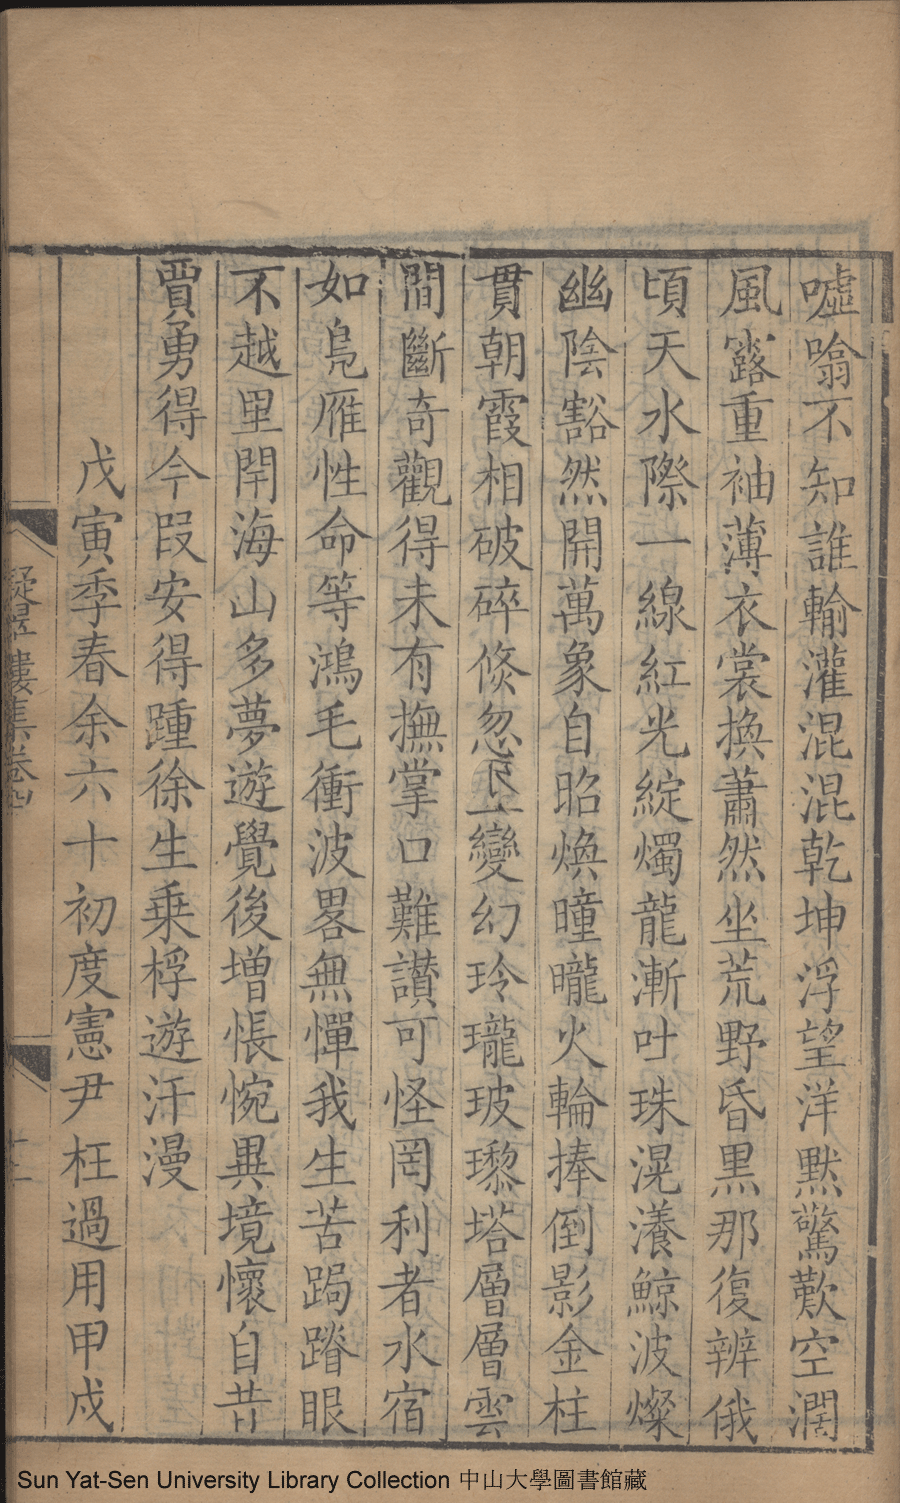 噓噏不知誰輸灌混混乾坤浮望洋黙驚歎空濶
風露重袖薄衣裳換蕭然坐荒野昏黒那復辨俄
頃天水際一線紅光綻燭龍漸吐珠滉瀁鯨波燦
幽陰豁然開萬象自昭煥曈曨火輪捧倒影金柱
貫朝霞相破碎倐忽巨變幻玲瓏玻瓈塔層層雲
間斷奇觀得未有撫掌口難讃可怪罔利者水宿
如鳬雁性命等鴻毛衝波畧無憚我生苦跼蹐眼
不越里閈海山多夢遊覺後増悵惋異境懷自昔
賈勇得今叚安得踵徐生乗桴遊汗漫
戊寅季春余六十初度憲尹枉過用甲戍
凝翠樓集卷四
十二
Sun Yat-Sen University Library Collection 中山大學圖書館藏